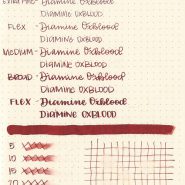 EXTRA FINE - Diamine Oxblood
DIAMINE OXBLOOD
FLEX - Diamine Oxblood
DIAMINE OXBLOOD
MEDIUM - Diamine Oxblood
DIAMINE OXBLOOD
BROAD - Diamine Oxblood
DIAMINE OXBLOOD
FLEX - Diamine Oxblood
DIAMINE OXBLOOD
5
10
15
20